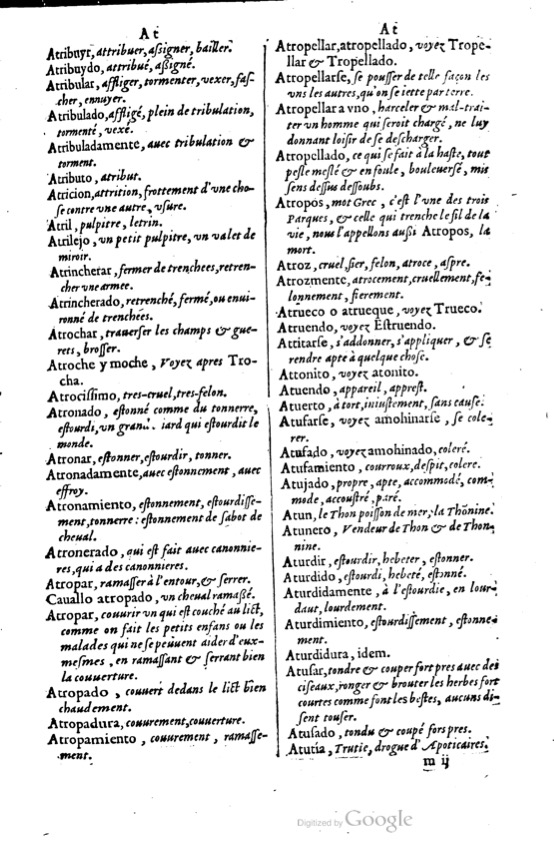 At
Atribuyr, attribuer, aſsigner, bailler.
Atribuydo, attribué, aſsigné.
Atribular, affliger, tormenter, vexer, faſ-
cher, ennuyer.
Atribulado, affligé, plein de tribulation,
tormenté, vexé.
Atribuladamente, auec tribulation &
torment.
Atributo, atribut.
Atricion, attrition, frottement d'vne cho-
ſe contre vne autre, vſure.
Atril, pulpitre, letrin.
Atrilejo, vn petit pulpitre, vn valet de
miroir.
Atrincherar, fermer de trenchees, retren-
cher vne armee.
Atrincherado, retrenché, fermé, ou enui-
ronné de trenchées.
Atrochar, trauerſer les champs & gue-
rets, broſſer.
Atroche y moche, Voyez apres Tro-
cha.
Atrociſſimo, tres-cruel, tres-felon.
Atronado, eſtonné comme du tonnerre,
eſtourdi, vn iard qui eſtourdit le
monde.
Atronar, eſtonner, eſtourdir, tonner.
Atronadamente, auec eſtonnement, auec
effroy.
Atronamiento, eſtonnement, eſtourdiſſe-
ment, tonnerre: eſtonnement de ſabot de
cheual.
Atronerado, qui eſt fait auec canonnie-
res, qui a des canonnieres.
Atropar, ramaſſer à l'entour, & ſerrer.
Cauallo atropado, vn cheual ramaſſé.
Atropar, couurir vn qui eſt couché au lict,
comme on fait les petits enfans ou les
malades qui ne ſe peuuent aider d'eux-
meſmes, en ramaſſant & ſerrant bien
la couuerture.
Atropado, couuert dedans le lict bien
chaudement.
Atropadura, couurement, couuerture.
Atropamiento, couurement, ramaſſe-
ment.
At
Atropellar, atropellado, voyez Trope-
llar & Tropellado.
Atropellarſe, ſe pouſſer de telle façon les
vns les autres, qu'on ſe iette par terre.
Atropellar a vno, harceler & mal-trai-
ter vn homme qui ſeroit chargé, ne luy
donnant loiſir de ſe deſcharger.
Atropellado, ce qui ſe fait à la haſte, tout
peſle meſlé & en foule, bouleuerſé, mis
ſens deſſus deſſoubs.
Atropos, mot Grec, c'eſt l'vne des trois
Parques, & celle qui trenche le fil de la
vie, nous l'appellons auſsi Atropos, la
mort.
Atroz, cruel, fier, felon, atroce, aſpre.
Atrozmente, atrocement, cruellement, fe-
lonnement, fierement.
Atrueco o atrueque, voyez Trueco.
Atruendo, voyez Eſtruendo.
Attitarſe, s'addonner, s'appliquer, & ſe
rendre apte à quelque choſe.
Attonito, voyez atonito.
Atuendo, appareil, appreſt.
Atuerto, à tort, iniuſtement, ſans cauſe.
Atufarſe, voyez amohinarſe, ſe cole-
rer.
Atufado, voyez amohinado, coleré.
Atufamiento, courroux, deſpit, colere.
Atujado, propre, apte, accommodé, com-
mode, accouſtré, paré.
Atun, le Thon poiſſon de mer, la Thonine.
Atunero, Vendeur de Thon & de Thon-
nine.
Aturdir, eſtourdir, hebeter, eſtonner.
Aturdido, eſtourdi, hebeté, eſtonné.
Aturdidamente, à l'eſtourdie, en lour-
daut, lourdement.
Aturdimiento, eſtourdiſſement, eſtonne-
ment.
Aturdidura, idem.
Atuſar, tondre & couper fort pres auec des
ciſeaux, ronger & brouter les herbes fort
courtes comme font les beſtes, aucuns di-
ſent touſer.
Atuſado, tondu & coupé fort pres.
Atutia, Trutie, drogue d'Apoticaires.
m ij
Digitized by Google